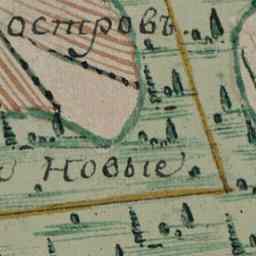 островъ
Новые